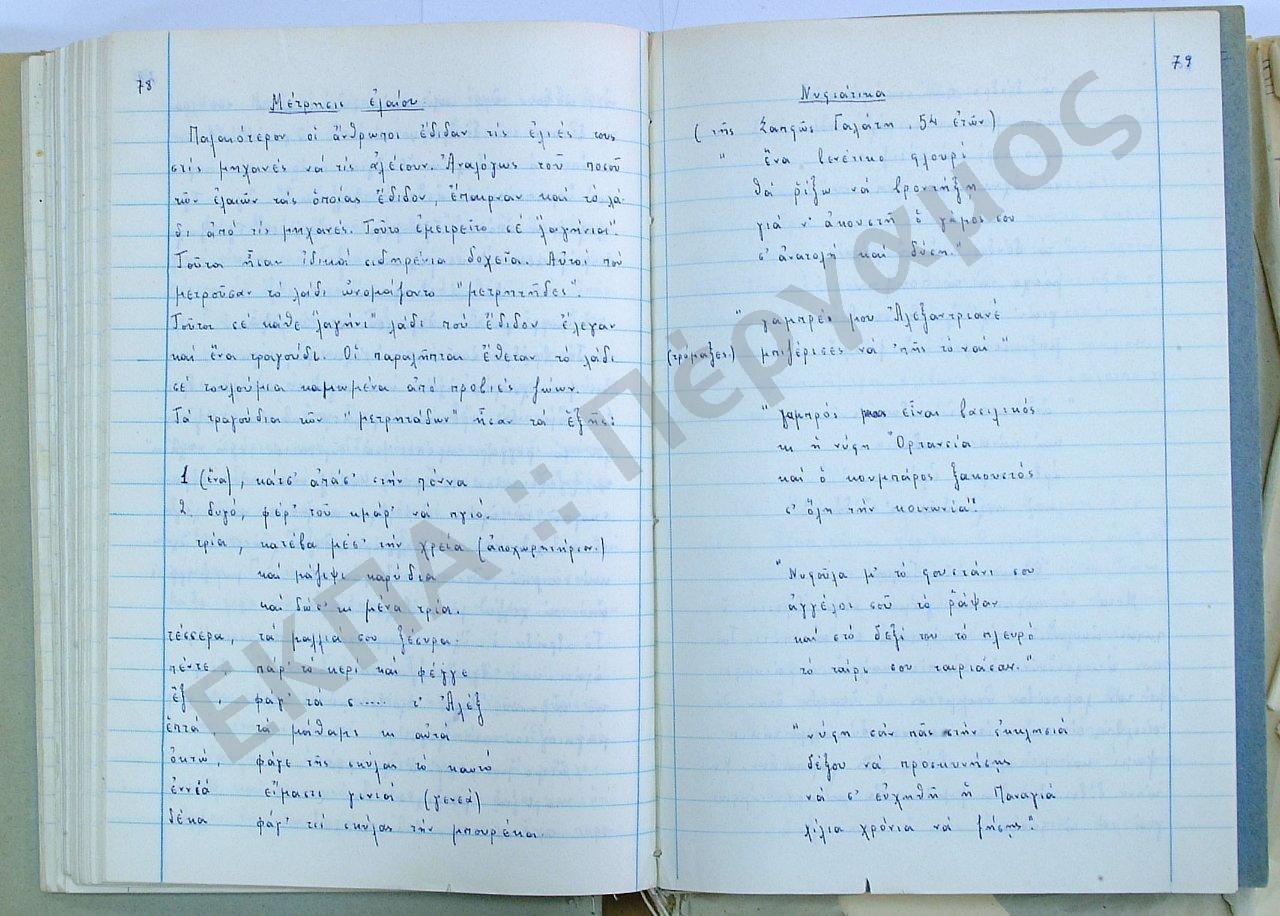 78
Μέτρησις ἐλαίου
Παλαιότερον οἱ ἄνθρωποι ἔδιδαν τὶς ἐλιές τους
στὶς μηχανὲς νὰ τὶς ἀλέσουν. Ἀναλόγως τοῦ ποσοῦ
τῶν ἐλαιῶν τὰς ὁποίας ἔδιδον, ἔπαιρναν καὶ τὸ λά-
δι ἀπὸ τὶς μηχανές. Τοῦτο ἐμετρεῖτο σὲ "λαγήνια".
Τοῦτα ἦσαν εἰδικὰ σιδηρένια δοχεῖα. Αὐτοὶ ποὺ
μετροῦσαν τὸ λάδι ὠνομάζοντο "μετρητῆδες".
Τοῦτοι σὲ κάθε "λαγήνι" λάδι ποὺ ἔδιδον ἔλεγαν
καὶ ἕνα τραγούδι. Οἱ παραλῆπται ἔθεταν τὸ λάδι
σὲ τουλούμια καμωμένα ἀπὸ προβιὲς ζώων.
Τὰ τραγούδια τῶν "μετρητάδων" ἦσαν τὰ ἑξῆς:
1 (ἕνα), κάτσ' ἀπάσ' στὴν πέννα
2. δυγό, φέρ' τοῦ κμάρ' νὰ πγιό.
τρία, κατέβα μέσ' τὴν χρεία (ἀποχωρητήριον.)
καὶ μάζιψι καρύδια
καὶ δῶσ' κι μένα τρία.
τέσσερα, τὰ μαλλιά σου ξέσυρα.
πέντε, πάρ' τὸ κερὶ καὶ φέγγε
ἕξ, φάγ' τὰ σ..... τ' Ἀλέξ
ἑπτὰ τὰ μάθαμι κι αὐτὰ
ὀκτώ, φάγε τῆς σκύλας τὸ καυτό
ἐννεά εἴμαστι γενιά (γενεά)
δέκα φάγ' τσὶ σκύλας τὴν μπουρέκα.
79
Νυφιάτικα
(τῆς Σαπφῶς Γαλάτη, 54 ἐτῶν)
"ἕνα βενέτικο φλουρί
θὰ ρίξω νὰ βροντήξη
γιὰ ν' ἀκουστῆ ὁ γάμος σου
σ' ἀνατολὴ καὶ δύση."
"γαμπρέ μου Ἀλεξαντριανέ
(τρόμαξες.) μπιζέρισες νὰ 'πῆς τὸ ναί"
"γαμπρός εἶναι βασιλικός
κι ἡ νύφη Ὀρτανσία
καὶ ὁ κουμπάρος ξακουστός
σ' ὅλη τὴν κοινωνία".
"Νυφοῦλα μ' τὸ φουστάνι σου
ἀγγέλοι σοῦ τὸ ράψαν
καὶ στὸ δεξί του τὸ πλευρό
τὸ ταίρι σου ταιριάσαν."
"νύφη σὰν πᾶς στὴν ἐκκλησιά
δέξου νὰ προσκυνήσῃς
νὰ σ' εὐχηθῆ ἡ Παναγιά
χίλια χρόνια νὰ ζήσῃς".
ΕΚΠΑ :: Πέργαμος